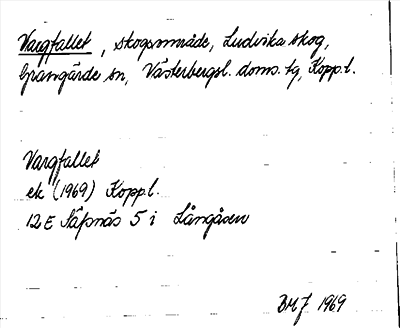 Vargfallet, skogsområde, Ludvika skog,
Grangärde sn, Västerbergsl. doms. tg, Kopp. l.
Vargfallet
ek (1969) Kopp. l.
12E Säfsnäs 5 i Långåsen
BMJ 1969